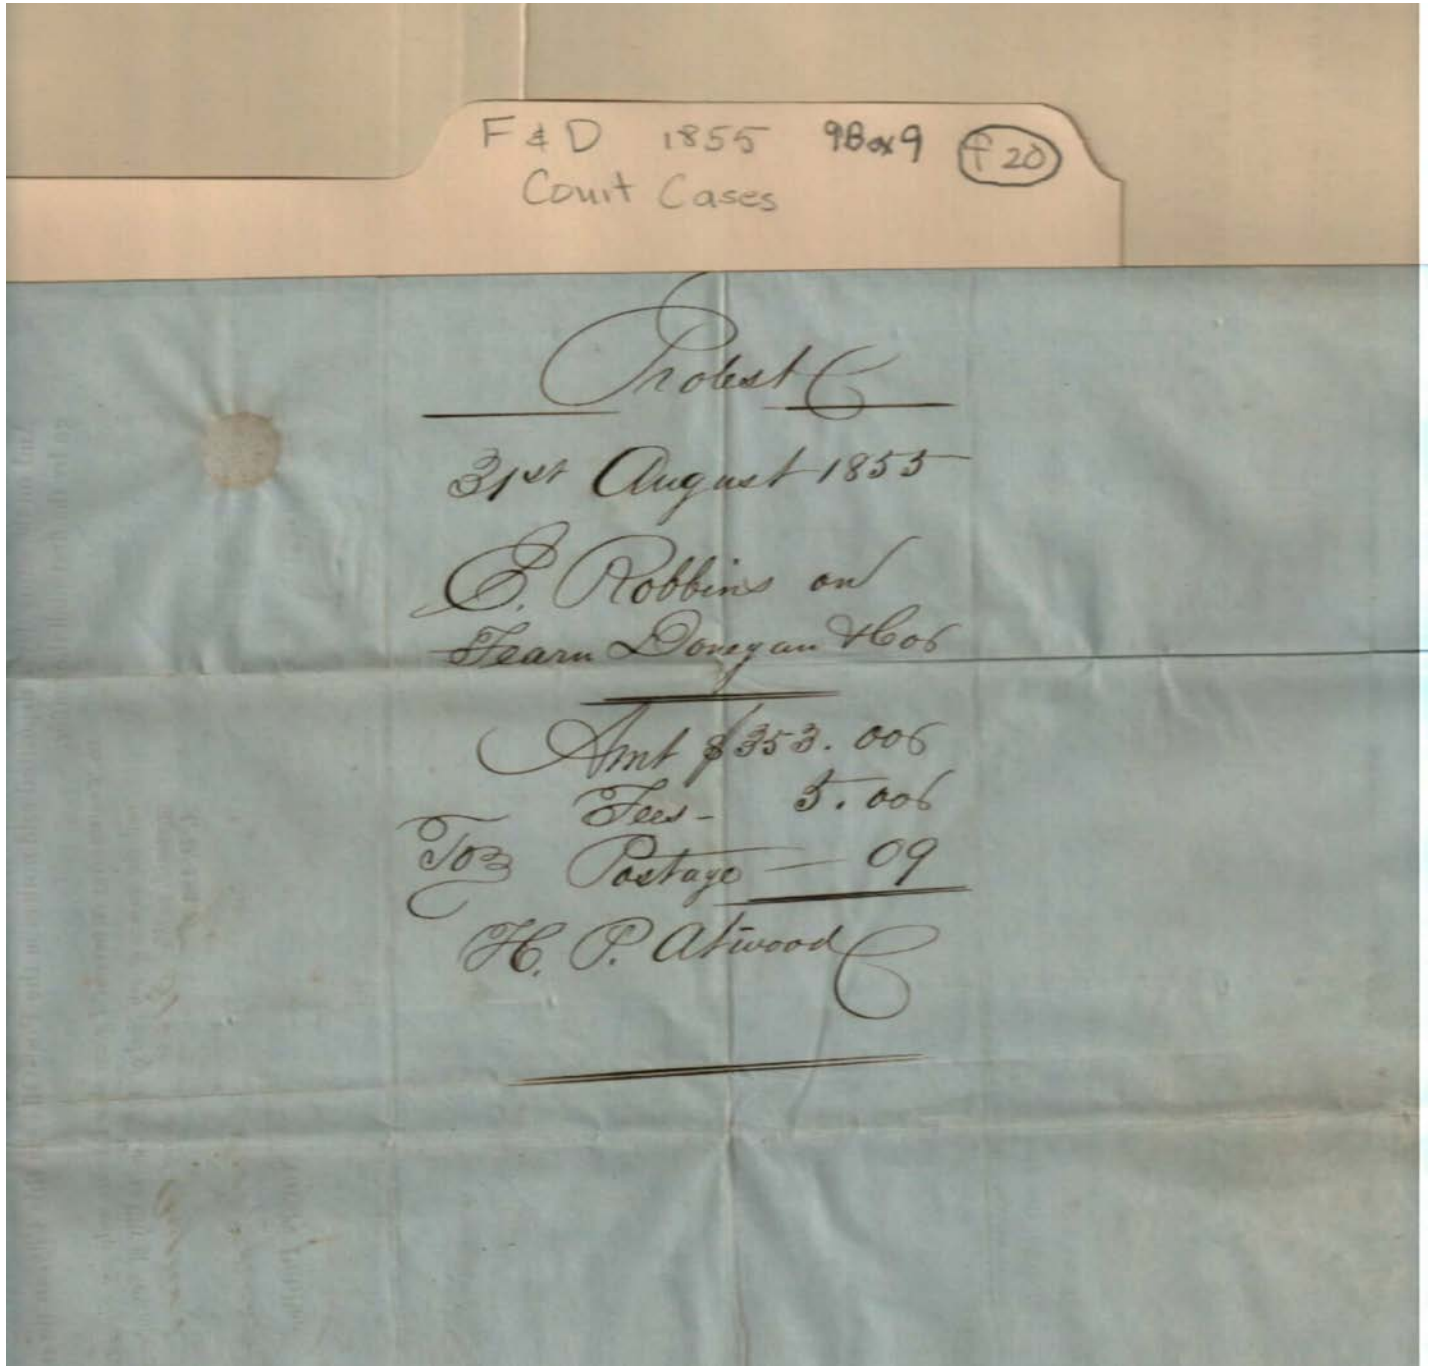 F & D 1855 9Box9 f 20
Court Cases
Protest
31st August 1855
E. Robbins on
Fearn Donegan & Co
Amt $353.00
Fees - 5.00
Postage — 09
To
H. P. Atwood